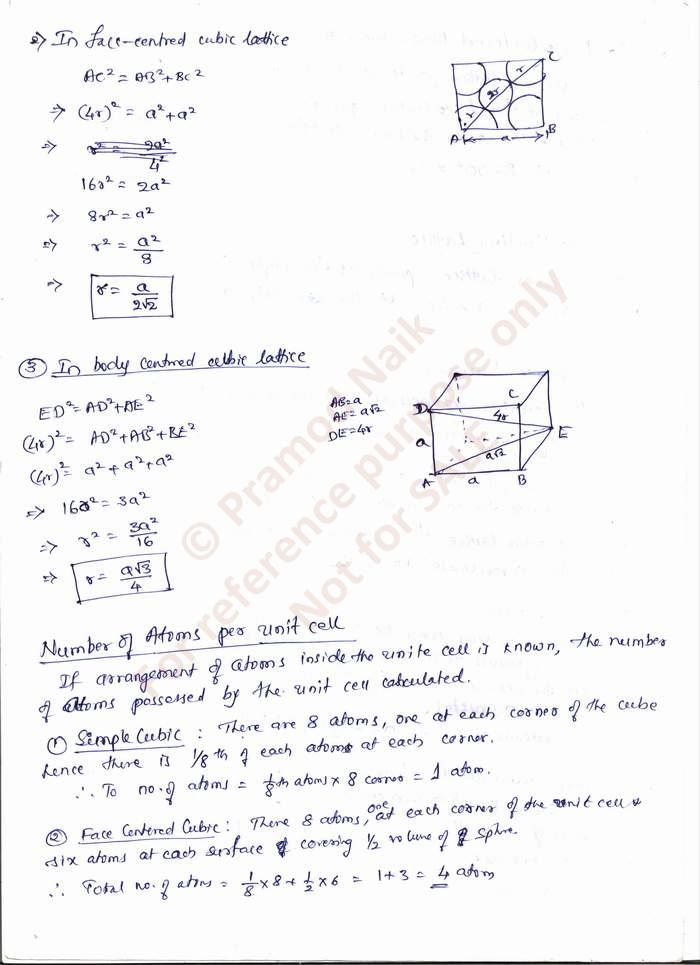 2) In face-centred cubic lattice
AC² = AB² + BC²
⇒ (4r)² = a² + a²
⇒ r² = 2a²/4²
16r² = 2a²
⇒ 8r² = a²
⇒ r² = a²/8
⇒ r = a/2√2
C
r
2r
r
A
a
B
③ In body centred cubic lattice
ED² = AD² + AE²
(4r)² = AD² + AB² + BE²
(4r)² = a² + a² + a²
⇒ 16r² = 3a²
⇒ r² = 3a²/16
⇒ r = a√3/4
AB = a
AE = a√2
DE = 4r
D
C
4r
E
a
a√2
A
a
B
Number of Atoms per unit cell
If arrangement of atoms inside the unite cell is known, the number
of atoms possessed by the unit cell calculated.
① Simple Cubic : There are 8 atoms, one at each corner of the cube
hence there is 1/8 th of each atoms at each corner.
∴ To no. of atoms = 1/8 th atoms × 8 corneo = 1 atom.
② Face Centered Cubic : There 8 atoms, one at each corner of the unit cell &
six atoms at each surface of covering 1/2 volume of sphre.
∴ Total no. of atom = 1/8 × 8 + 1/2 × 6 = 1 + 3 = 4 atom
© Pramod Naik
For reference purpose only
Not for SALE